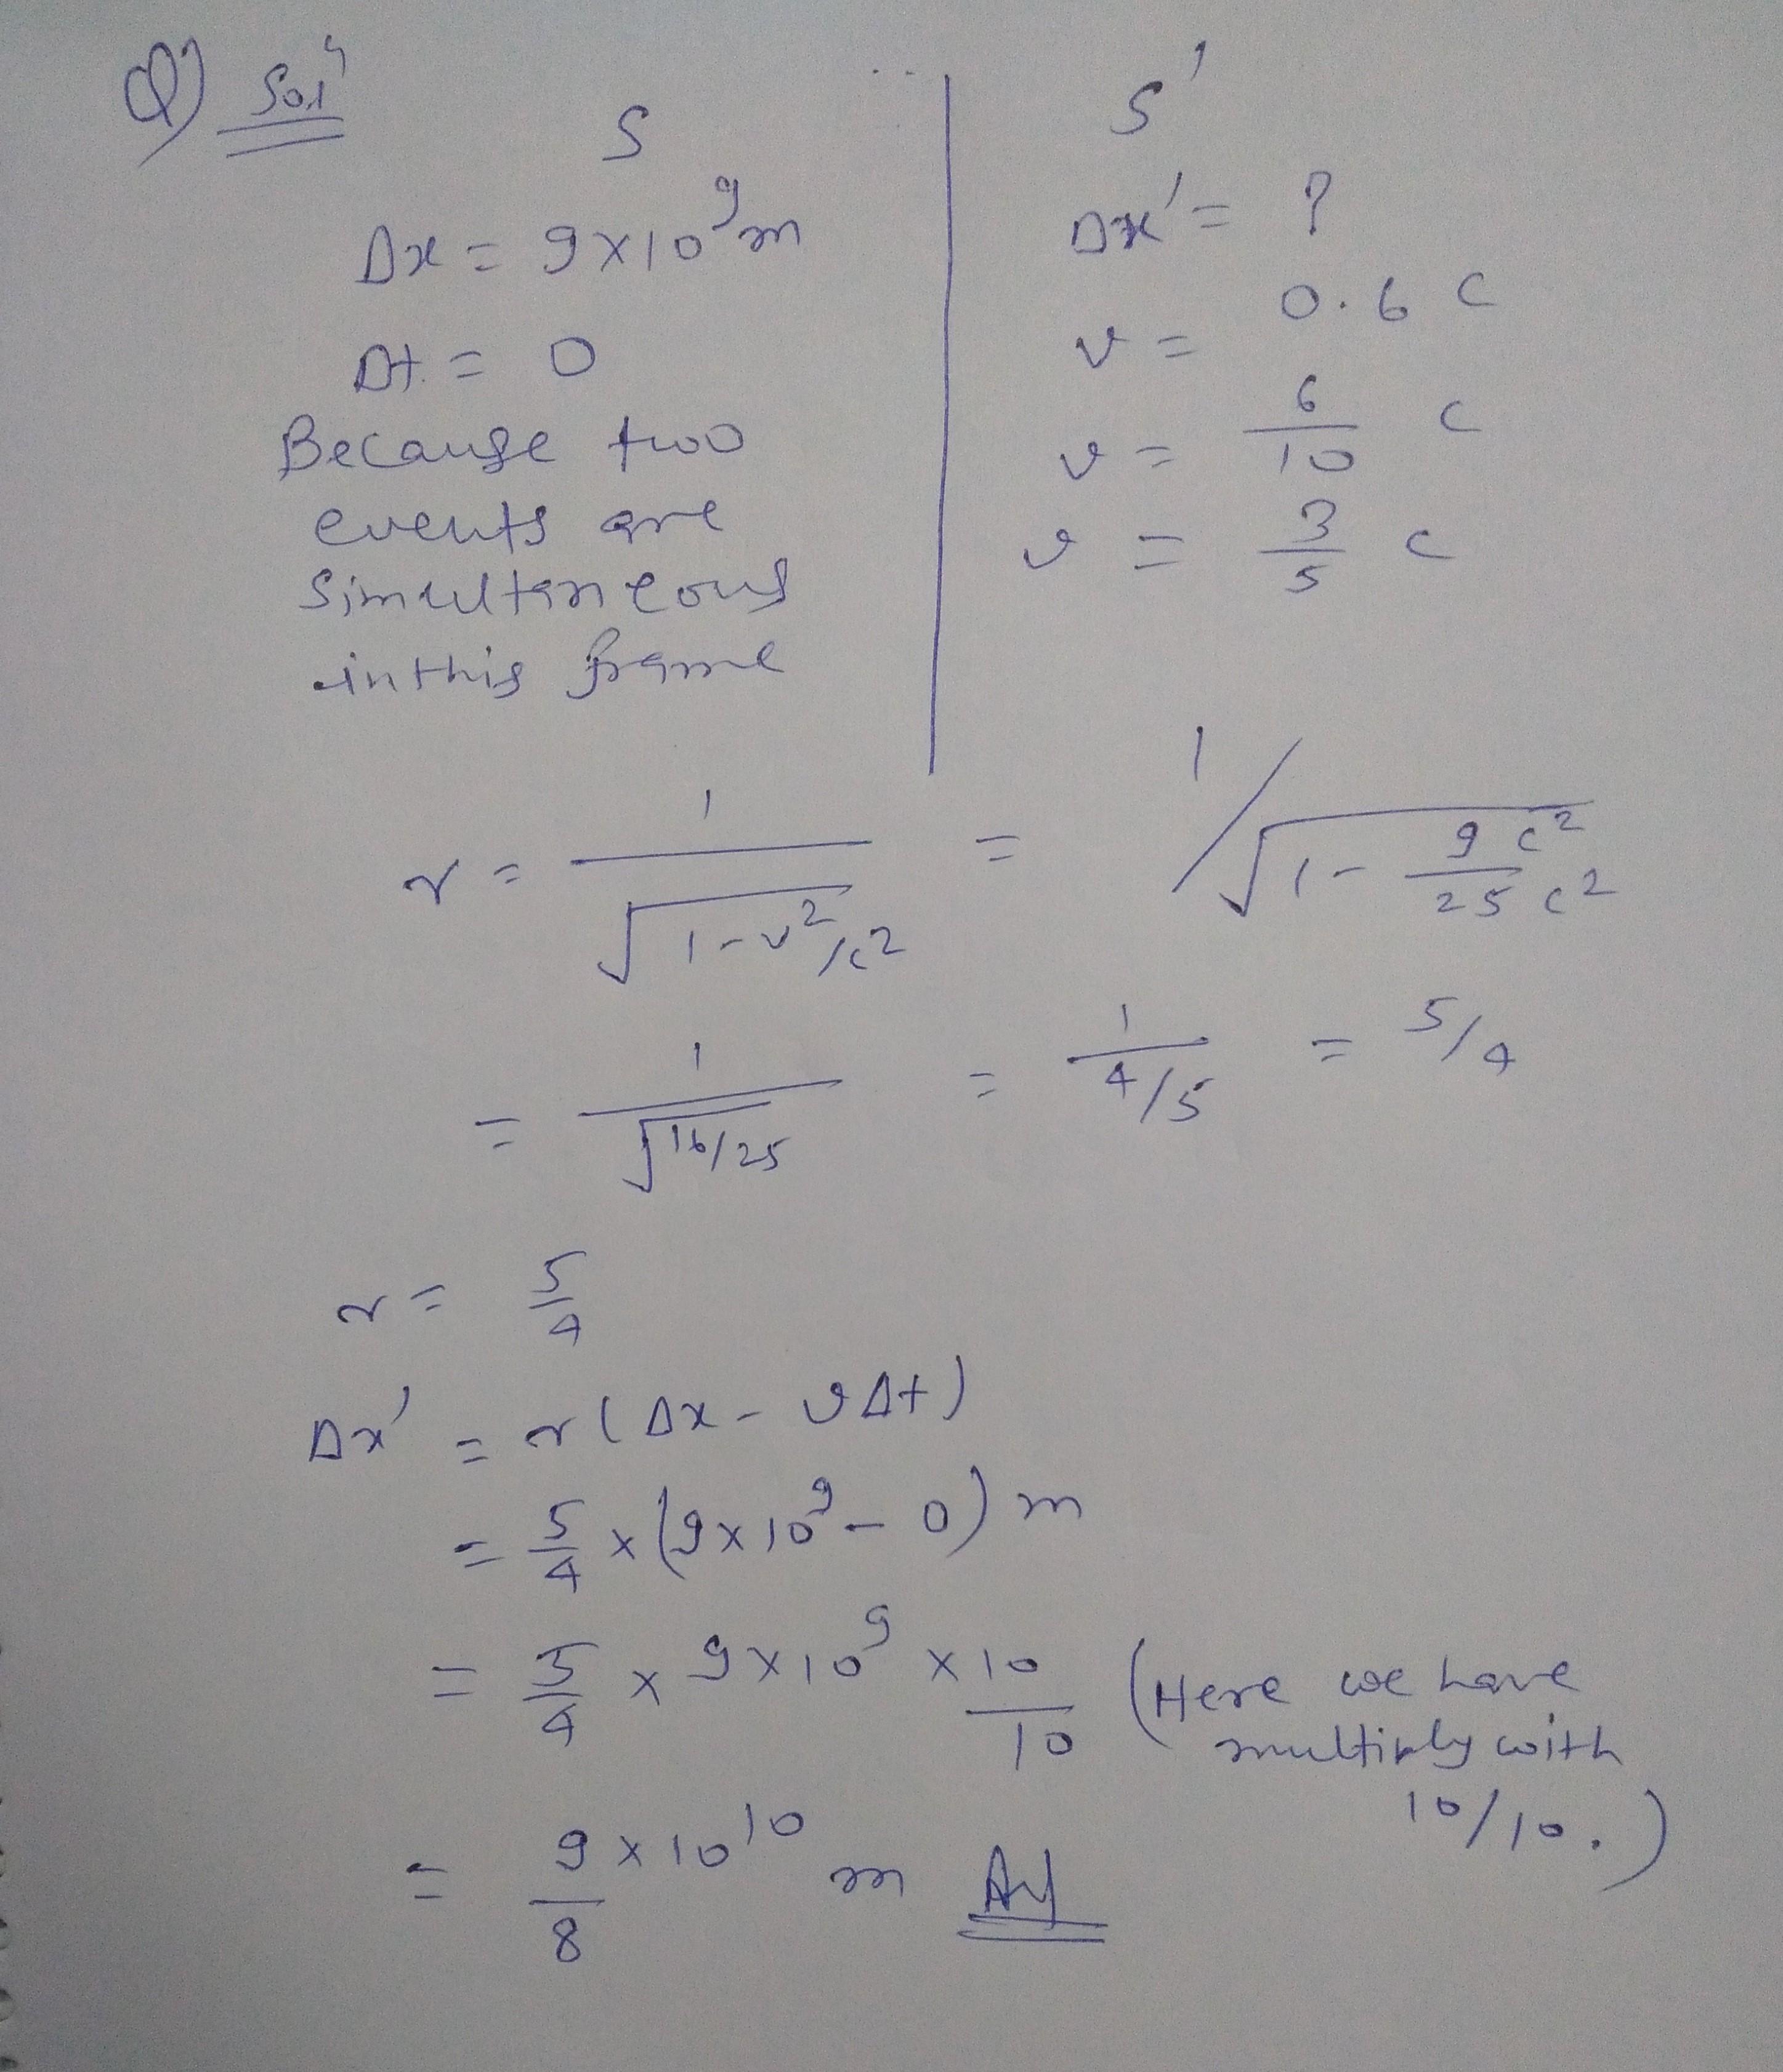 Q) Solⁿ
S
Δx = 9×10⁹m
Δt = 0
Because two
events are
Simultaneous
in this frame
S'
Δx' = ?
v = 0.6 c
v = 6/10 c
v = 3/5 c
γ = 1/√(1-v²/c²) = 1/√(1- 9c²/25c²)
= 1/√(16/25) = 1/(4/5) = 5/4
γ = 5/4
Δx' = γ(Δx - vΔt)
= 5/4 × (9×10⁹ - 0) m
= 5/4 × 9×10⁹ × 10/10 (Here we have
multiply with
10/10.)
= 9×10¹⁰/8 m Ans